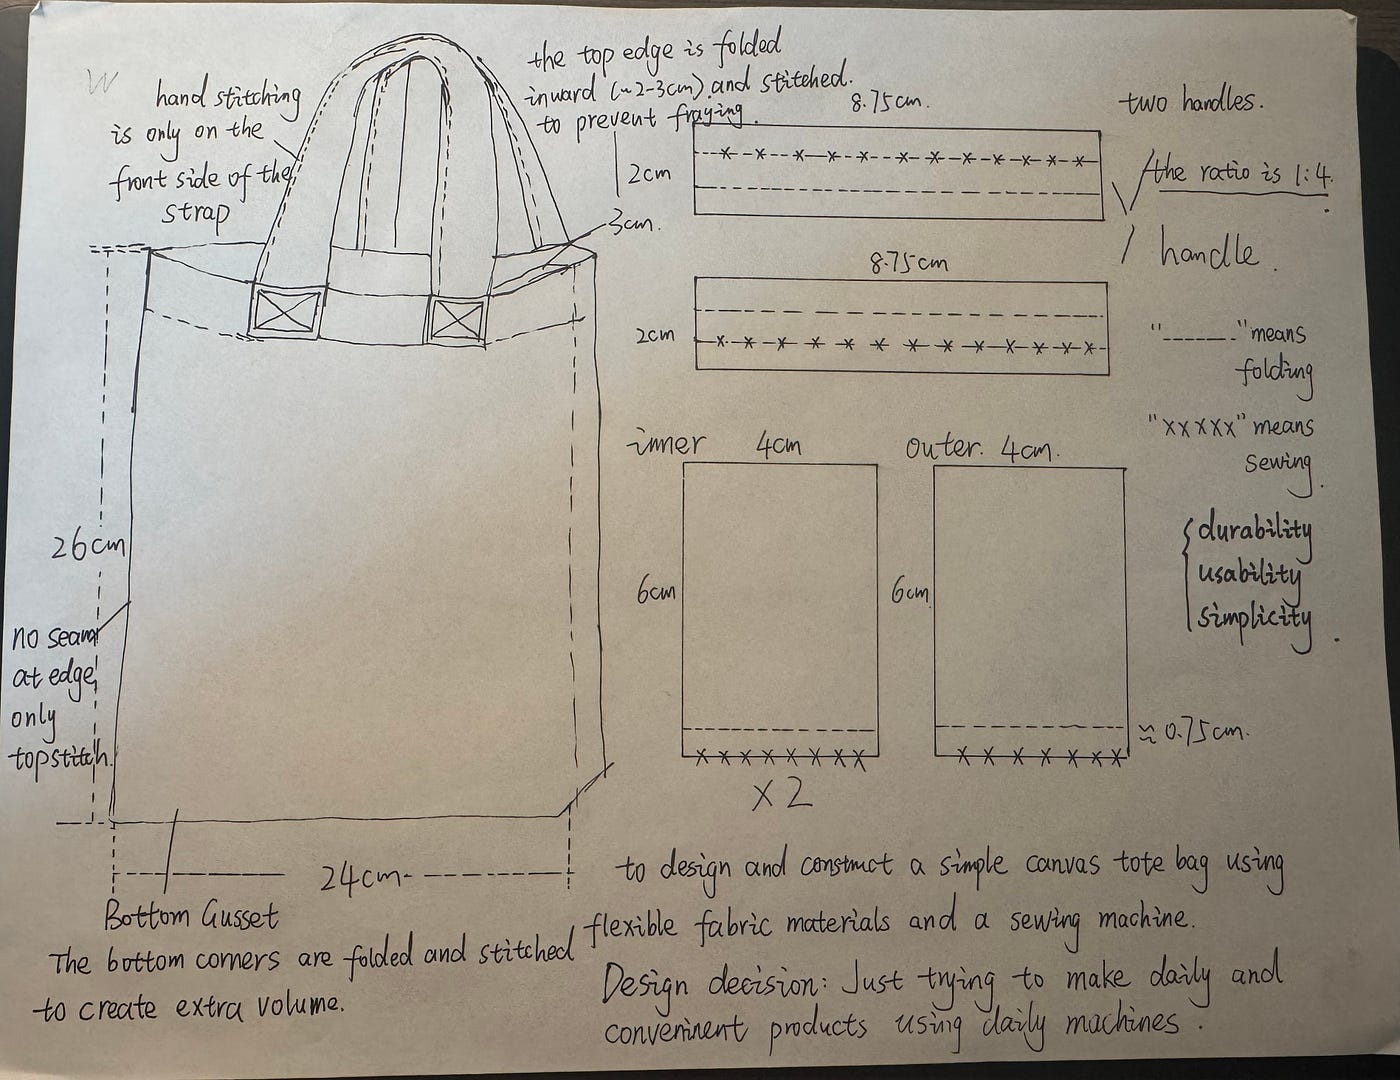 W
hand stitching
is only on the
front side of the
strap
the top edge is folded
inward (~2-3cm) and stitched.
to prevent fraying.
8.75cm.
2cm
3cm.
two handles.
the ratio is 1:4.
handle.
8.75cm
2cm
"------" means
folding
"xxxxx" means
sewing.
inner 4cm
outer. 4cm.
6cm
6cm
≈ 0.75cm.
x 2
durability
usability
simplicity.
26cm
no seam
at edge,
only
topstitch.
24cm
Bottom Gusset
The bottom corners are folded and stitched
to create extra volume.
to design and construct a simple canvas tote bag using
flexible fabric materials and a sewing machine.
Design decision: Just trying to make daily and
conveninent products using daily machines.